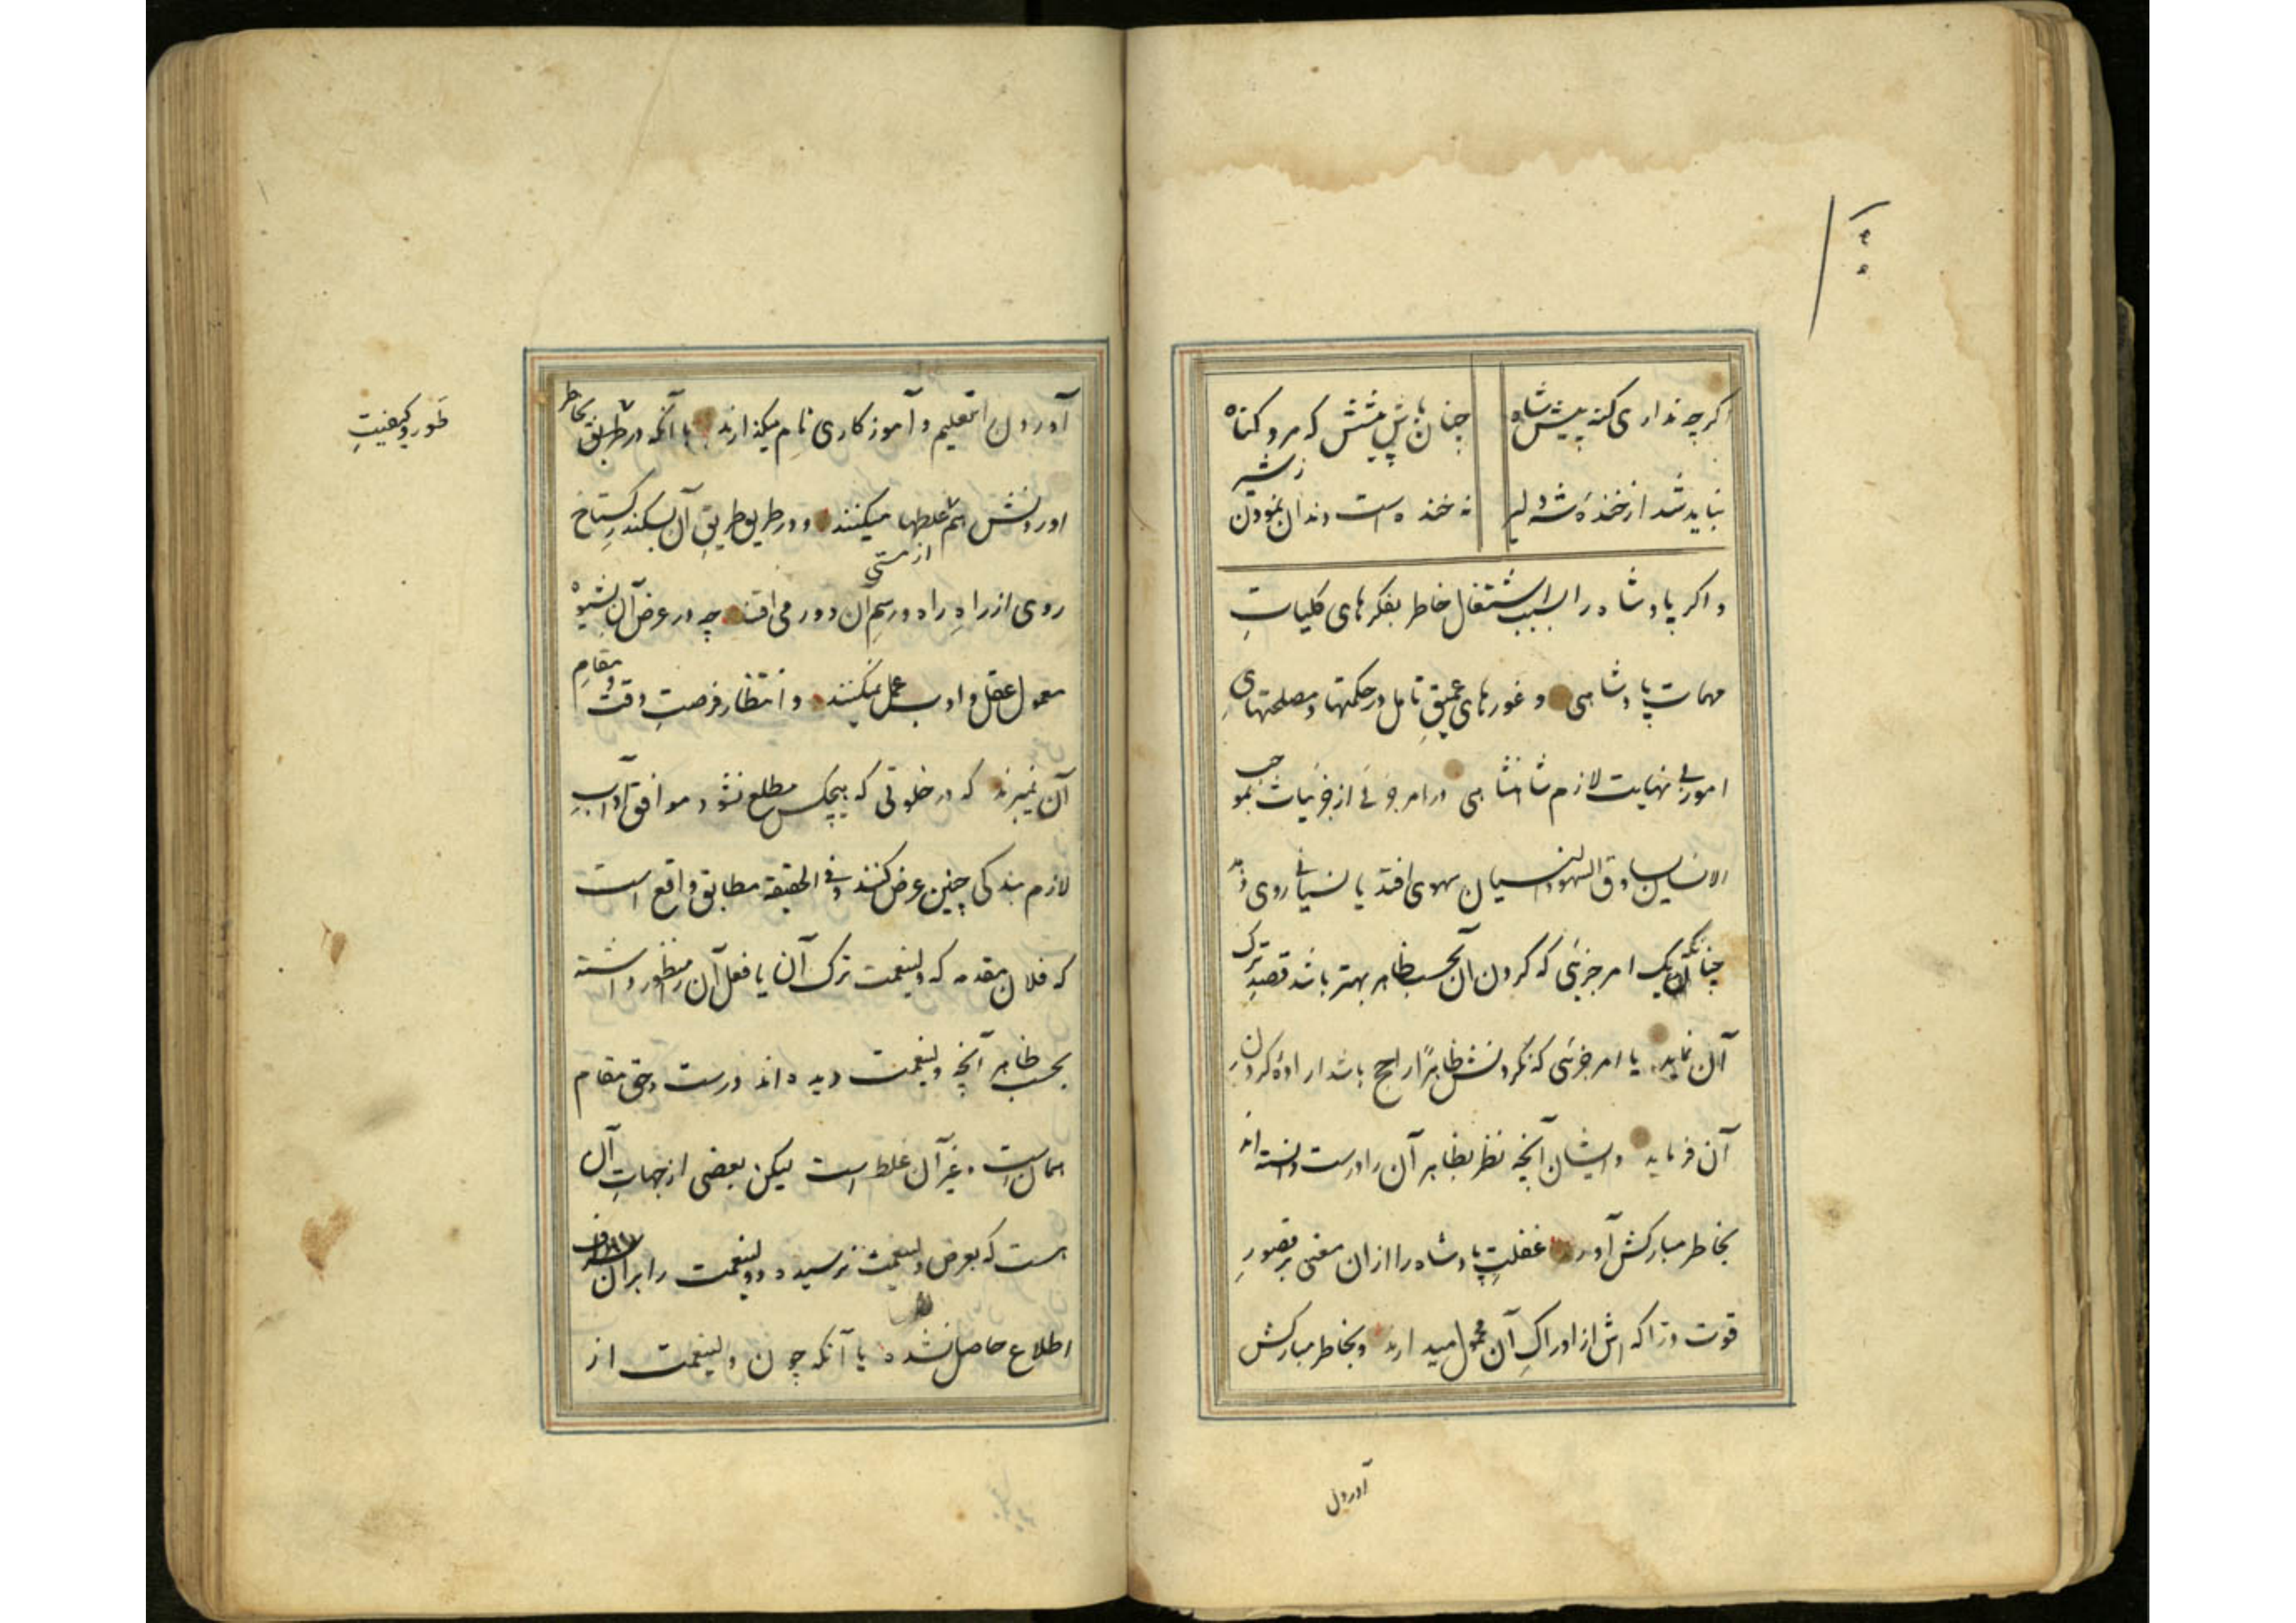 اکر چه نداری کنه پیش شاه چنان باش پیشش که مرد کناه
نباید شد از خندهٔ شه دلیر نه خنده است دندان نمودن ز شیر
و اکر پادشاه را بسبب اشتغال خاطر بفکرهای کلیاتِ
مهمات پادشاهی و غورهای عمیقِ تامل در حکمتها و مصلحتهای
امور بی نهایت لازم شاهنشاهی در امر جزئی از جزئیات بموجب
الانسان یساوق السهو و النسیان سهوی افتد یا نسیانی روی دهد
چنانکه آن یک امر جزیی که کردن آن بحسب ظاهر بهتر باشد قصدِ ترک
آن نماید یا امر جزئی که نکردنش ظاهراً راجح باشد ارادهٔ کردنِ
آن فرماید و ایشان آنچه نظر بظاهر آن را درست دانسته اند
بخاطر مبارکش آورند غفلتِ پادشاه را از ان معنی بر قصورِ
قوت دراکه اش از ادراکِ آن محمول میدارند و بخاطر مبارکش
آوردن
آوردن را تعلیم و آموزکاری نام میکذارند با آنکه در طریق بخاطر
آوردنش هم غلطها میکنند و در طریق طریقِ آن بسکندرِ کستاخ
روی از راهِ راه و رسمِ آن دور می افتند چه در عرض آن بشیوه
از مستی
معمول عقل و ادب عمل نمیکنند و انتظار فرصتِ وقت و مقامِ
آن نمیبرند که در خلوتی که هیچکس مطلع نشود موافق آدابِ
لازم بندکی چنین عرض کنند و فی الحقیقة مطابق واقع است
که فلان مقدمه که ولینعمت ترک آن یا فعل آن را منظور داشته
بحسب ظاهر آنچه ولینعمت دیده اند درست و حق مقام
همان است و غیر آن غلط است لیکن بعضی از جهاتِ آن
هست که بعرض ولینعمت نرسیده و ولینعمت را بران
اطلاع حاصل نشده یا آنکه چون ولینعمت از
طور و کیفیتِ